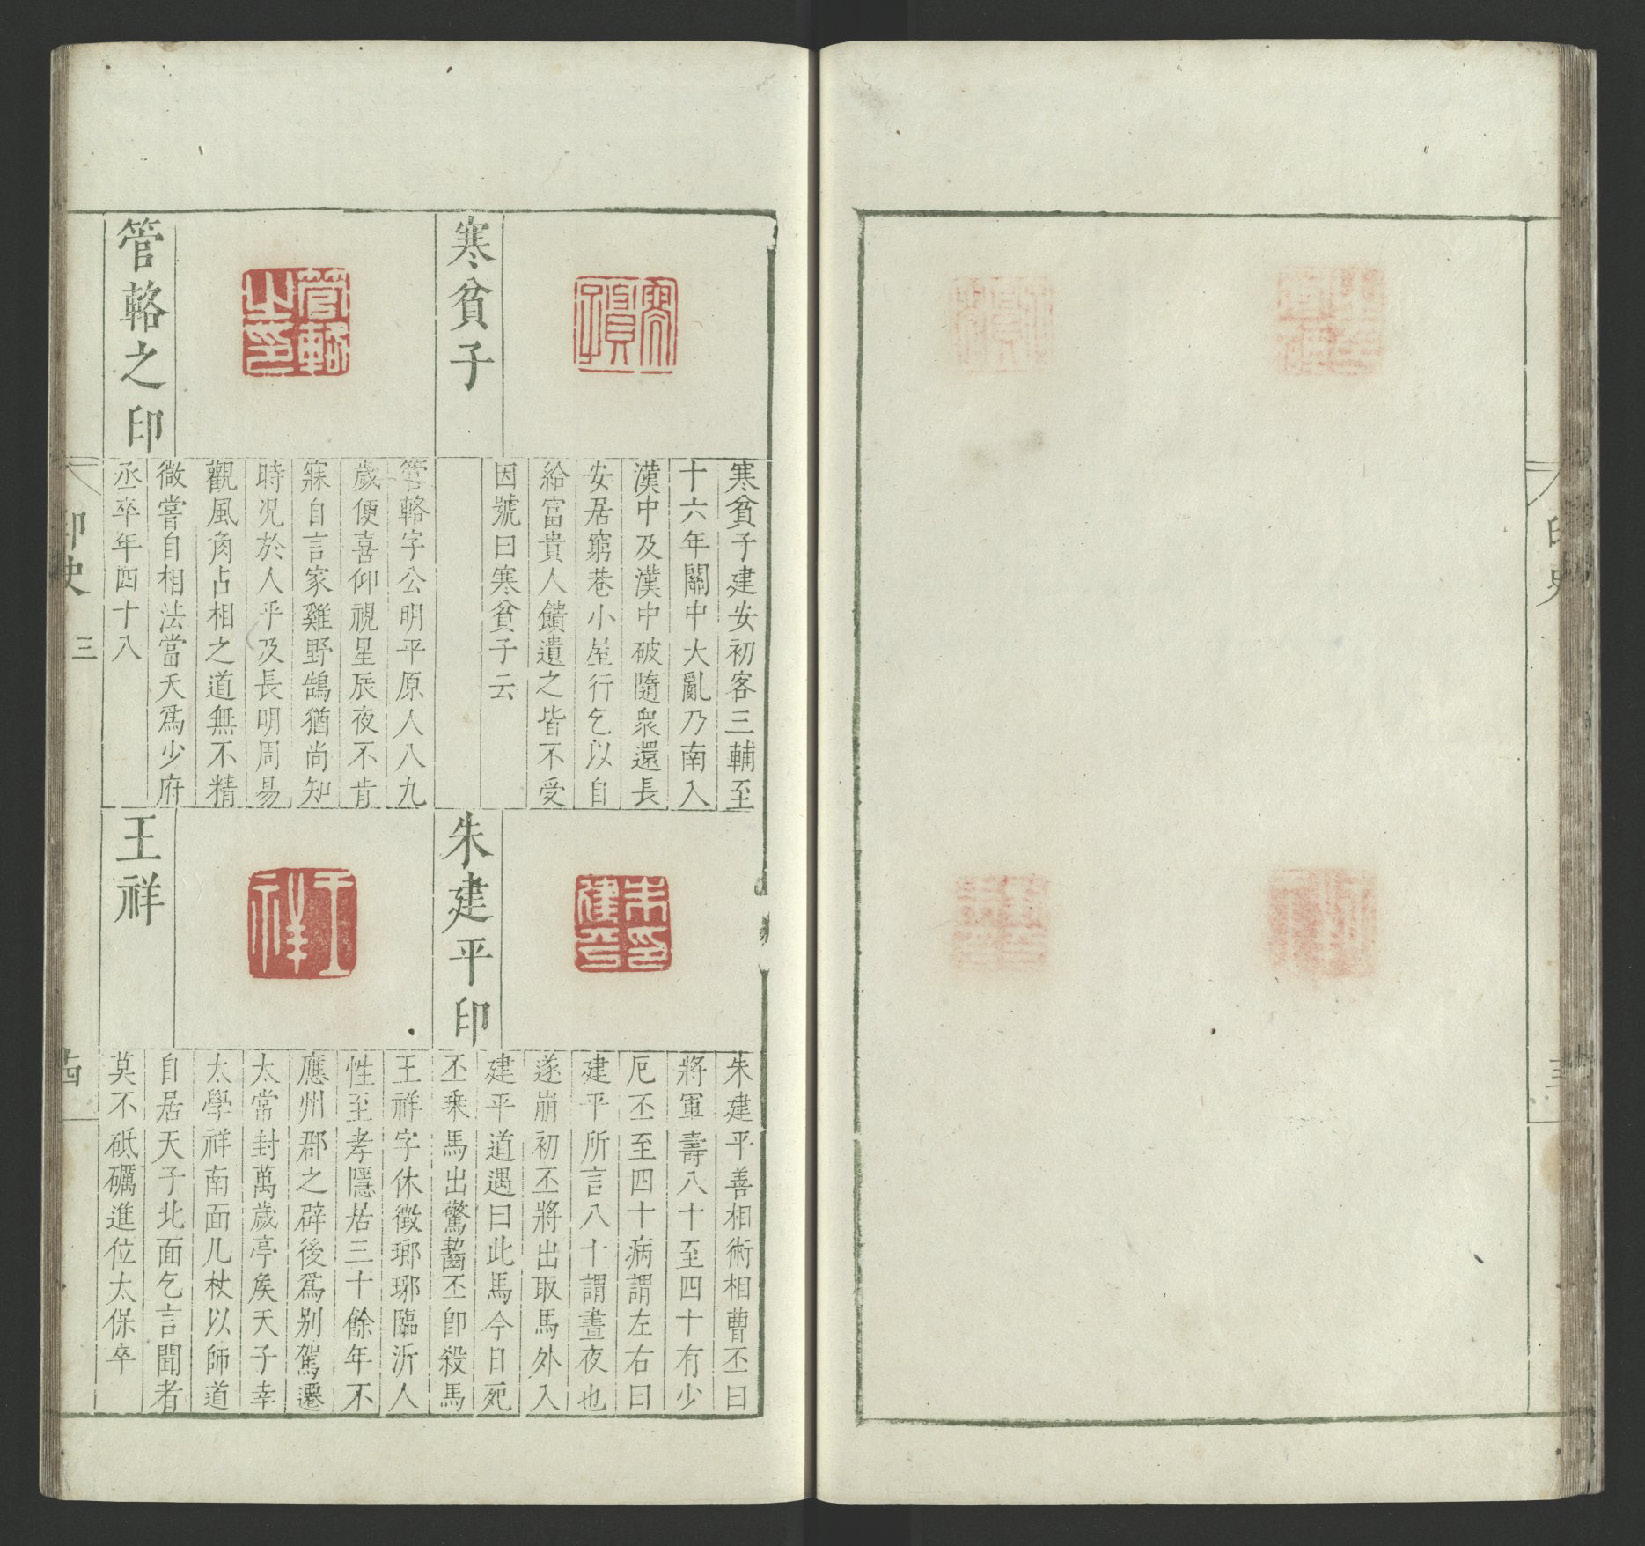 寒貧子
寒貧子建安初客三輔至
十六年關中大亂乃南入
漢中及漢中破隨衆還長
安居窮巷小屋行乞以自
給富貴人饋遺之皆不受
因號曰寒貧子云
管輅之印
管輅字公明平原人八九
歲便喜仰視星辰夜不肯
寐自言家雞野鵠猶尚知
時况於人乎及長明周易
觀風角占相之道無不精
微嘗自相法當天爲少府
丞卒年四十八
朱建平印
朱建平善相術相曹丕曰
將軍壽八十至四十有少
厄丕至四十病謂左右曰
建平所言八十謂晝夜也
遂崩初丕將出取馬外入
建平道遇曰此馬今日死
丕乘馬出驚齧丕卽殺馬
王祥
王祥字休徵瑯琊臨沂人
性至孝隱居三十餘年不
應州郡之辟後爲别駕遷
太常封萬歲亭矦天子幸
太學祥南面几杖以師道
自居天子北面乞言聞者
莫不砥礪進位太保卒
印史
三